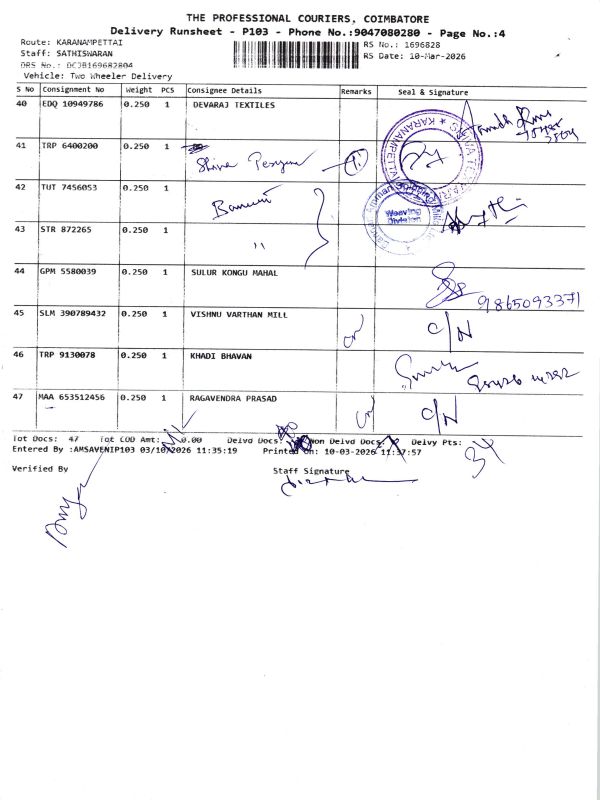 THE PROFESSIONAL COURIERS, COIMBATORE
Delivery Runsheet - P103 - Phone No.:9047080280 - Page No.:4
Route: KARANAMPETTAI
RS No.: 1696828
Staff: SATHISWARAN
RS Date: 10-Mar-2026
DRS No.: DCJB169682804
Vehicle: Two Wheeler Delivery
S No Consignment No Weight PCS Consignee Details Remarks Seal & Signature
40 EDQ 10949786 0.250 1 DEVARAJ TEXTILES
41 TRP 6400200 0.250 1 Shiva
42 TUT 7456053 0.250 1
43 STR 872265 0.250 1 "
Weaving Division
44 GPM 5580039 0.250 1 SULUR KONGU MAHAL
9865093371
45 SLM 390789432 0.250 1 VISHNU VARTHAN MILL C/N
46 TRP 9130078 0.250 1 KHADI BHAVAN
47 MAA 653512456 0.250 1 RAGAVENDRA PRASAD C/N
Tot Docs: 47 Tot COD Amt: 0.00 Delvd Docs: Non Delvd Docs: Delvy Pts: 34
Entered By :AMSAVENIP103 03/10/2026 11:35:19 Printed On: 10-03-2026 11:37:57
Verified By
Staff Signature